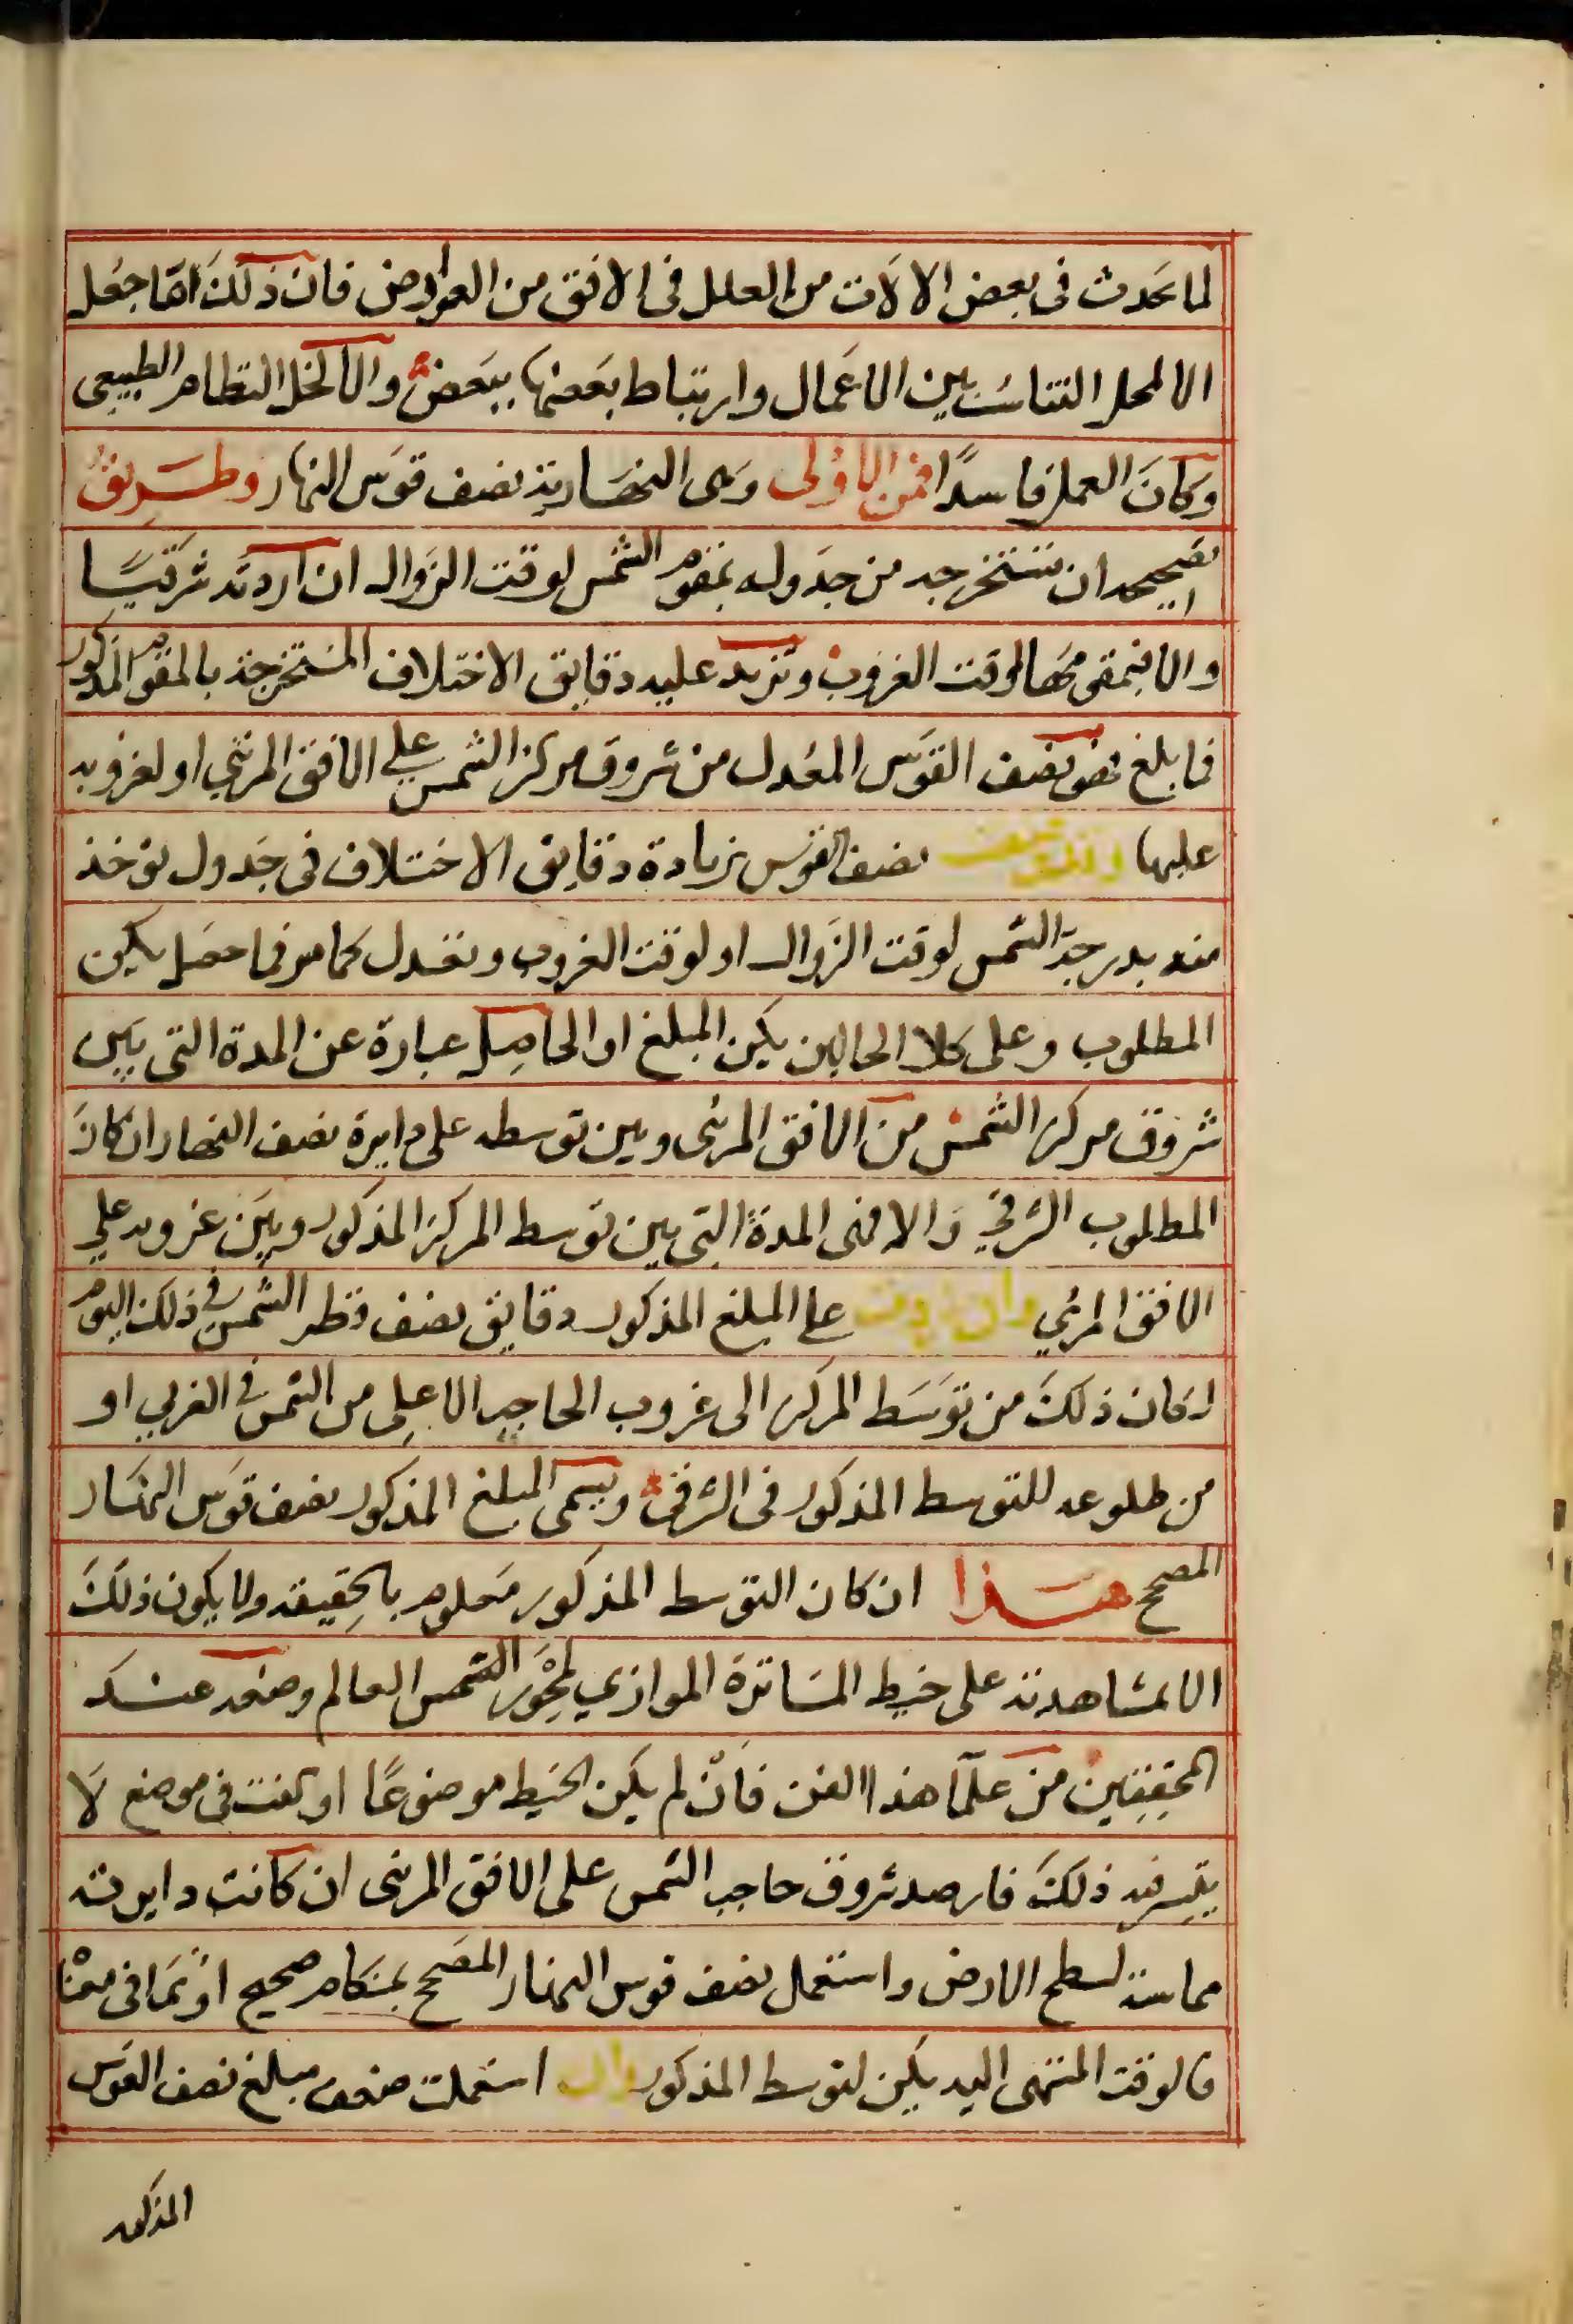 لما يحدث في بعض الالات من العلل في الافق من العوارض فان ذلك انما جعل
الا لمحل التناسب بين الاعمال وارتباط بعضها ببعض والا لاختل النظام الطبيعي
وكان العمل فاسدًا فمن الاولى وهي النهارية نصف قوس النهار وطريق
تصحيحه ان تستخرجه من جدوله بمقوم الشمس لوقت الزوال ان اردته شرقيًا
والا فبمقومها لوقت الغروب وتزيد عليه دقايق الاختلاف المستخرجة بالمقوم المذكور
فما بلغ فهو نصف القوس المعدل من شروق مركز الشمس علي الافق المرئي او لغروبه
عليها نصف القوس بزيادة دقايق الاختلاف في جدول توخذ
منه بدرجة الشمس لوقت الزوال او لوقت الغروب وتعدل كما مر فما حصل يكن
المطلوب وعلى كلا الحالين يكن المبلغ او الحاصل عبارة عن المدة التي بين
شروق مركز الشمس من الافق المرئى وبين توسطه على دايرة نصف النهار ان كان
المطلوب الشرقي والا فهي المدة التي بين توسط المركز المذكور وبين غروبه علي
الافق المرئي وان زدت على المبلغ المذكور دقايق نصف قطر الشمس في ذلك اليوم
كان ذلك من توسط المركز الى غروب الحاجب الاعلى من الشمس في الغربي او
من طلوعه للتوسط المذكور في الشرقي ويسمى المبلغ المذكور نصف قوس النهار
المصحح هذا ان كان التوسط المذكور معلوم بالحقيقة ولا يكون ذلك
الا بمشاهدته على خيط الساترة الموازي لمحور الشمس العالم وضعه عند
المحققين من علما هذا الفن فان لم يكن الخيط موضوعًا او كنت في موضع لا
يتيسر فيه ذلك فارصد شروق حاجب الشمس على الافق المرئى ان كانت دايرته
مماسة لسطح الارض واستعمل نصف قوس النهار المصحح بمنكام صحيح او بما في معناه
فالوقت المنتهى اليه يكن لتوسط المذكور وان استعملت ضعف مبلغ نصف القوس
المذكور